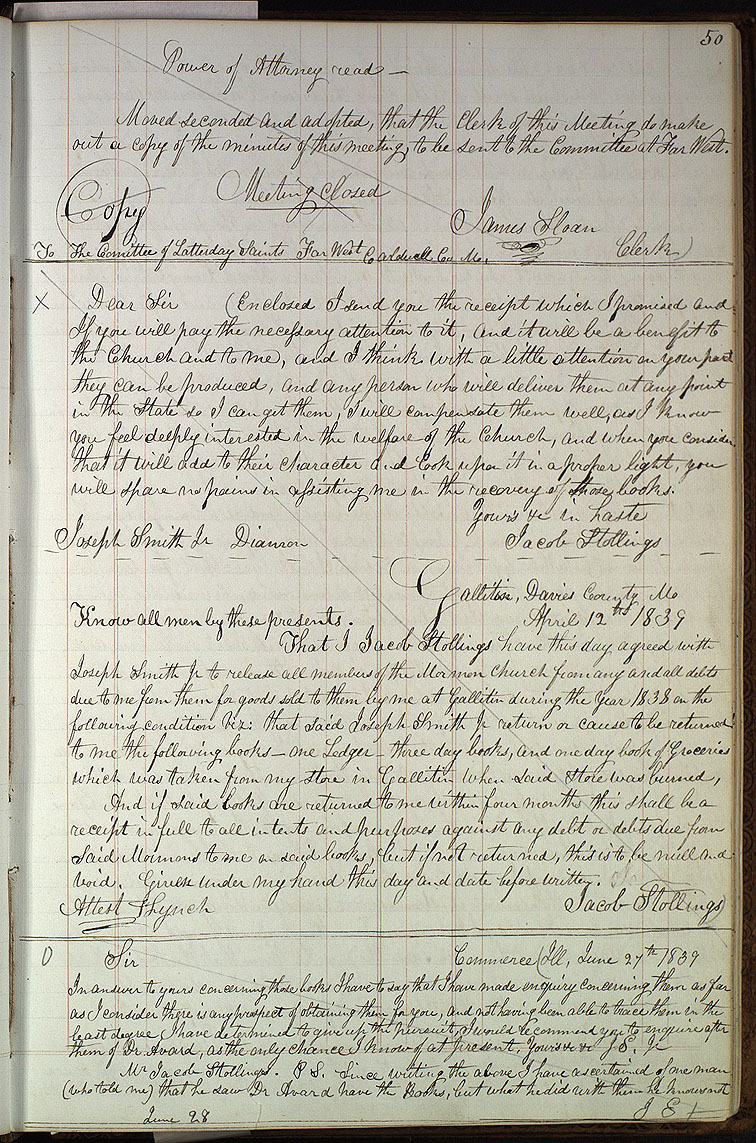 50
Power of Attorney read —
Moved seconded and adopted, that the Clerk of this Meeting do make
out a copy of the minutes of this meeting, to be sent to the Committee at Far West.
Meeting closed
Copy
James Sloan
To The Comittee of Latterday Saints Far West Caldwell Co. Mo,
Clerk)
X Dear Sir (Enclosed I send you the receipt which I promised and
If you will pay the necessary attention to it, and it will be a benefit to
the Church and to me, and I think with a little attention on your part
they can be produced, and any person who will deliver them at any point
in the State so I can get them, I will compensate them well, as I know
you feel deeply interested in the welfare of the Church, and when you consider
that it will add to their character and look upon it in a proper light, you
will spare no pains in assisting me in the recovery of those books.
Yours &c in haste
Joseph Smith Jr Diamon
Jacob Stollings
Gallitin, Davies County Mo
Know all men by these presents.
April 12th 1839
That I Jacob Stollings have this day agreed with
Joseph Smith Jr to release all members of the Mormon Church from any and all debts
due to me from them for goods sold to them by me at Gallitin during the Year 1838 on the
following condition Viz: that said Joseph Smith Jr return or cause to be returned
to me the following books — one Ledger — three day books, and one day book of Groceries
which was taken from my store in Gallitin when said Store was burned,
And if said books are returned to me within four months this shall be a
receipt in full to all intents and purposes against any debt or debts due from
said Mormons to me on said books, but if not returned, this is to be null and
void. Given under my hand this day and date before written.
Attest Lynch
Jacob Stollings)
0 Sir Commerce (Ill, June 27th 1839
In answer to yours concerning those books I have to say that I have made enquiry concerning them as far
as I consider there is any prospect of obtaining them for you, and not having been able to trace them in the
least degree I have determined to give up the pursuit, I would recommend you to enquire after
them of Dr. Avard, as the only chance I know of at present, Yours &c &c J S. Jr
Mr Jacob Stollings. P S. Since writing the above I have ascertained of one man
(who told me) that he saw Dr Avard have the Books, but what he did with them he knows not
June 28